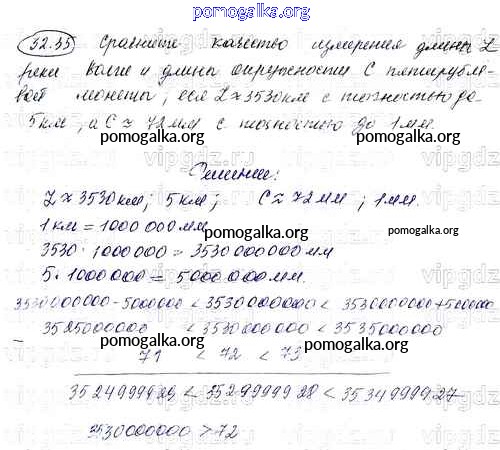 pomogalka.org
52.35 Сравните качество измерения длины L
реки Волги и длины окружности C пятирубле-
вой монеты, если L ≈ 3530 км с точностью до
5 км, а C ≈ 72 мм с точностью до 1 мм.
pomogalka.org
Решение:
L ≈ 3530 км; 5 км; C ≈ 72 мм; 1 мм.
1 км = 1000 000 мм
pomogalka.org
3530 · 1000000 = 3530 000 000 мм
5 · 1000000 = 5000 000 мм.
pomogalka.org
3530000000 - 5000000 < 3530000000 < 3530000000 + 5000000
3525000000 < 3530000000 < 3535000000
pomogalka.org
– 71 < 72 < 73
pomogalka.org
3524999929 < 3529999928 < 3534999927
pomogalka.org
3530000000 > 72
pomogalka.org